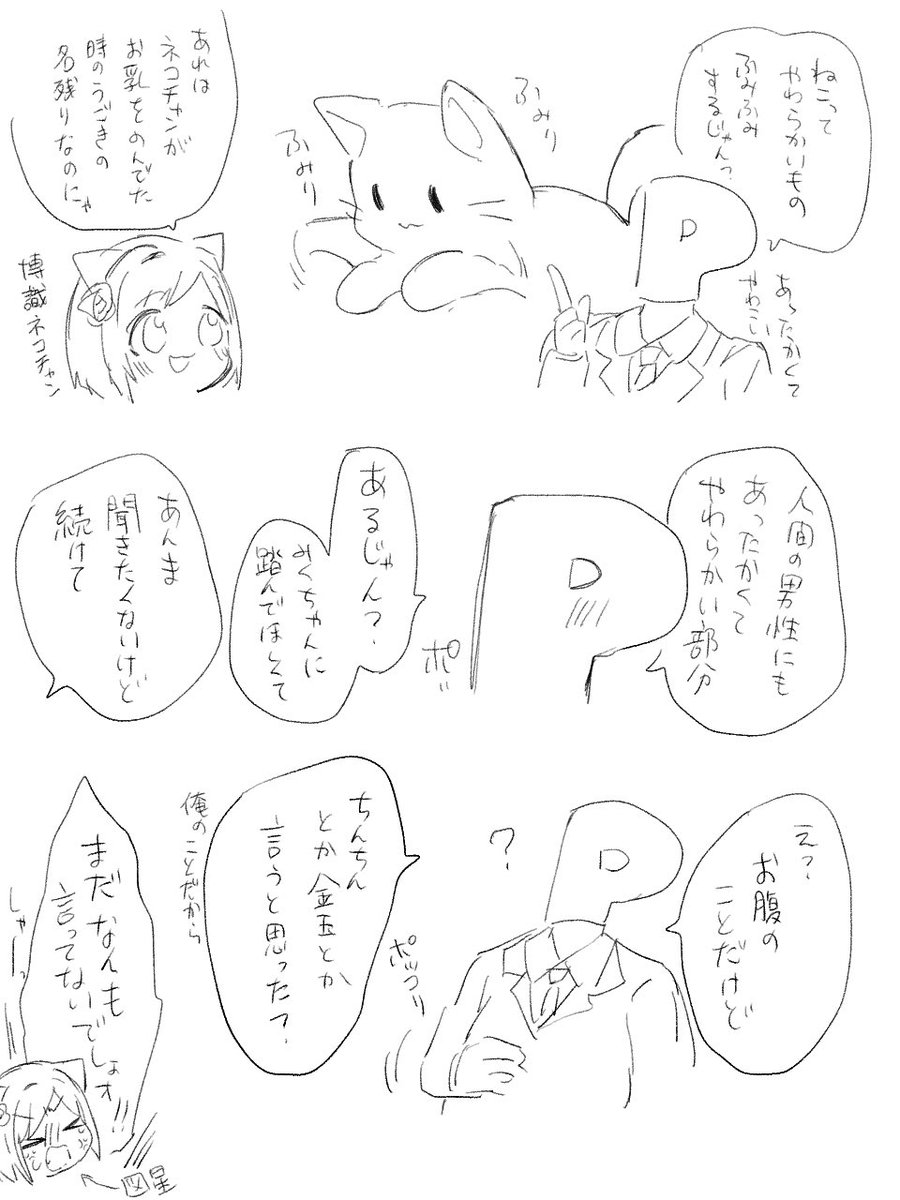 ねこって
やわらかいもの
ふみふみ
するじゃんっ
あったかくて
やわこい
P
ふみり
ふみり
あれは
ネコチャンが
お乳をのんでた
時のうごきの
名残りなのにゃ
博識ネコチャン
人間の男性にも
あったかくて
やわらかい部分
P
ポ゛
あるじゃん?
みくちゃんに
踏んでほしくて
あんま
聞きたくないけど
続けて
えっ
お腹の
ことだけど
P
?
ポッコリ
ちんちん
とか金玉とか
言うと思った?
俺のことだから
まだなんも
言ってないでしょォ
!!
しゃーっ
図星